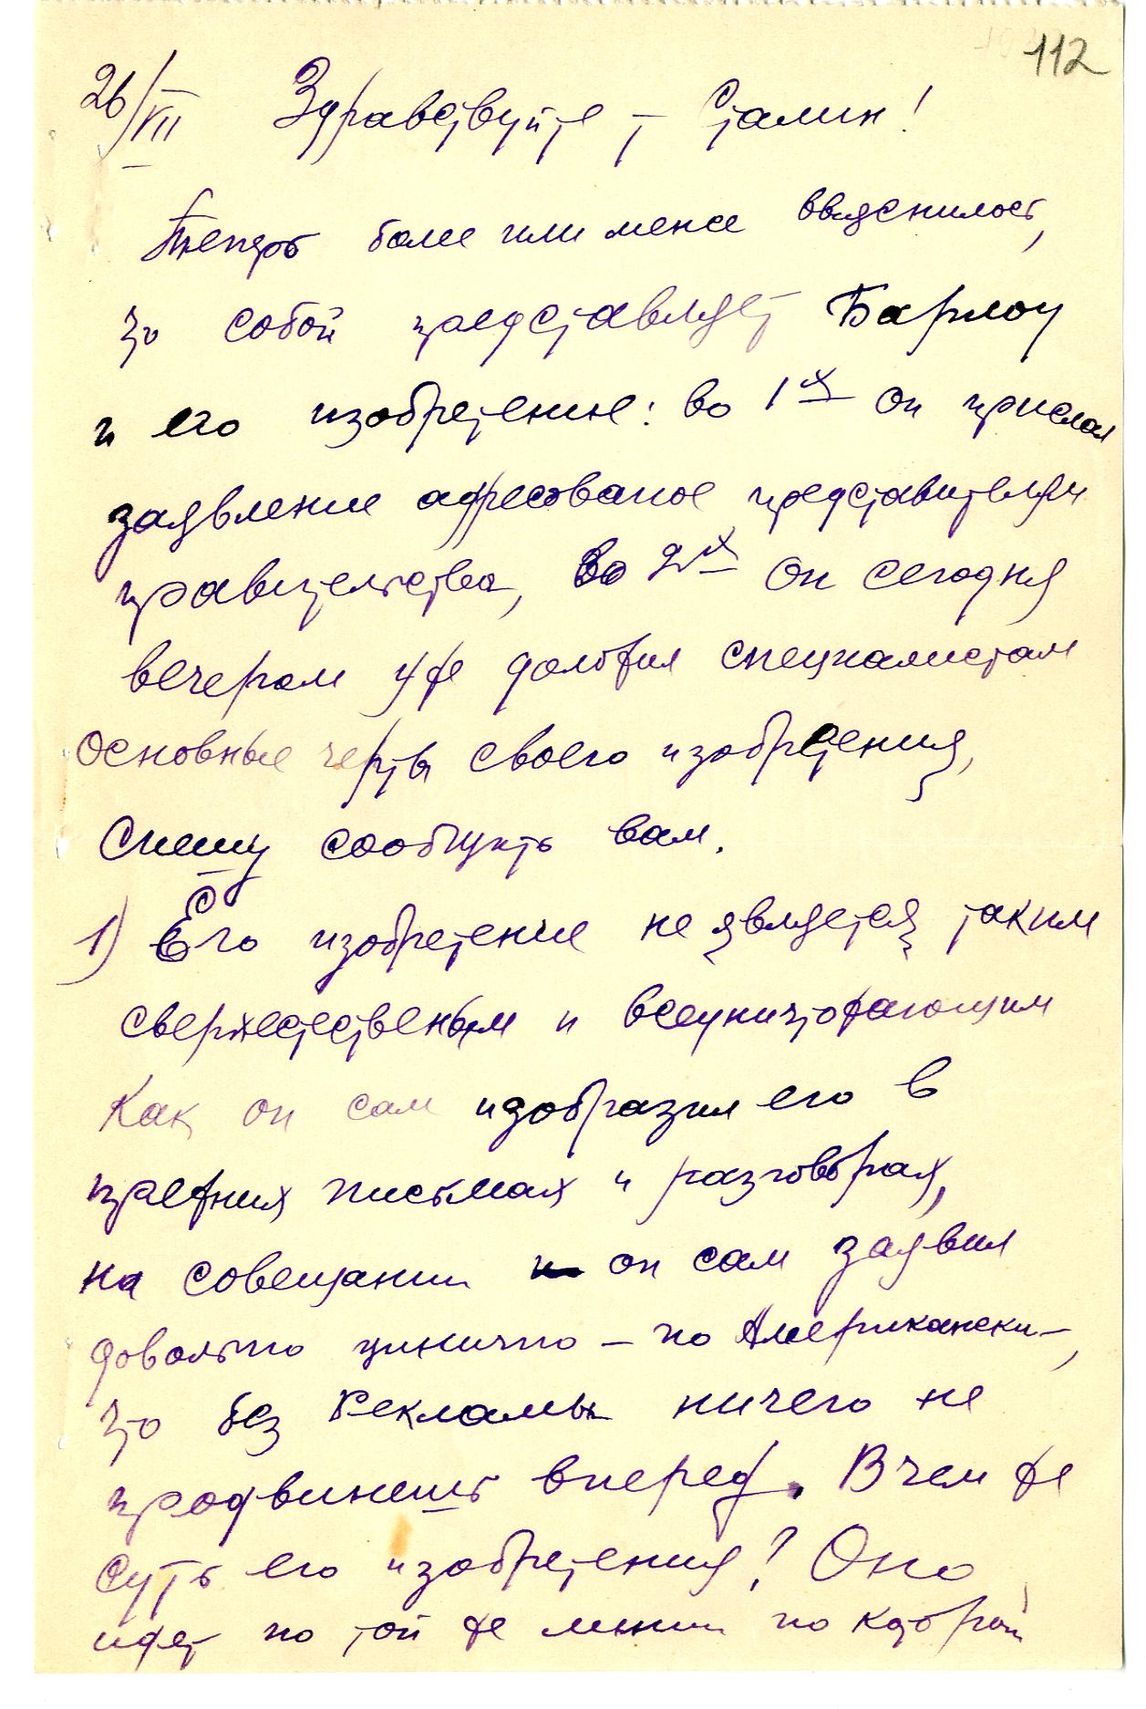 112
26/VII Здравствуйте т Сталин!
Теперь более или менее выяснилось,
что собой представляет Барлоу
и его изобретение: во 1ых он прислал
заявление адресованое представителям
правительства, во 2ых он сегодня
вечером уже доложил специалистам
основные черты своего изобретения,
Спешу сообщить вам.
1) Его изобретение не является таким
сверхестественым и всеуничтожающим
как он сам изобразил его в
прежних письмах и разговорах,
на совещании он сам заявил
довольно цинично – по Американски –,
что без Рекламы ничего не
продвинешь вперед. В чем же
суть его изобретения? Оно
идет по той же линии по которой